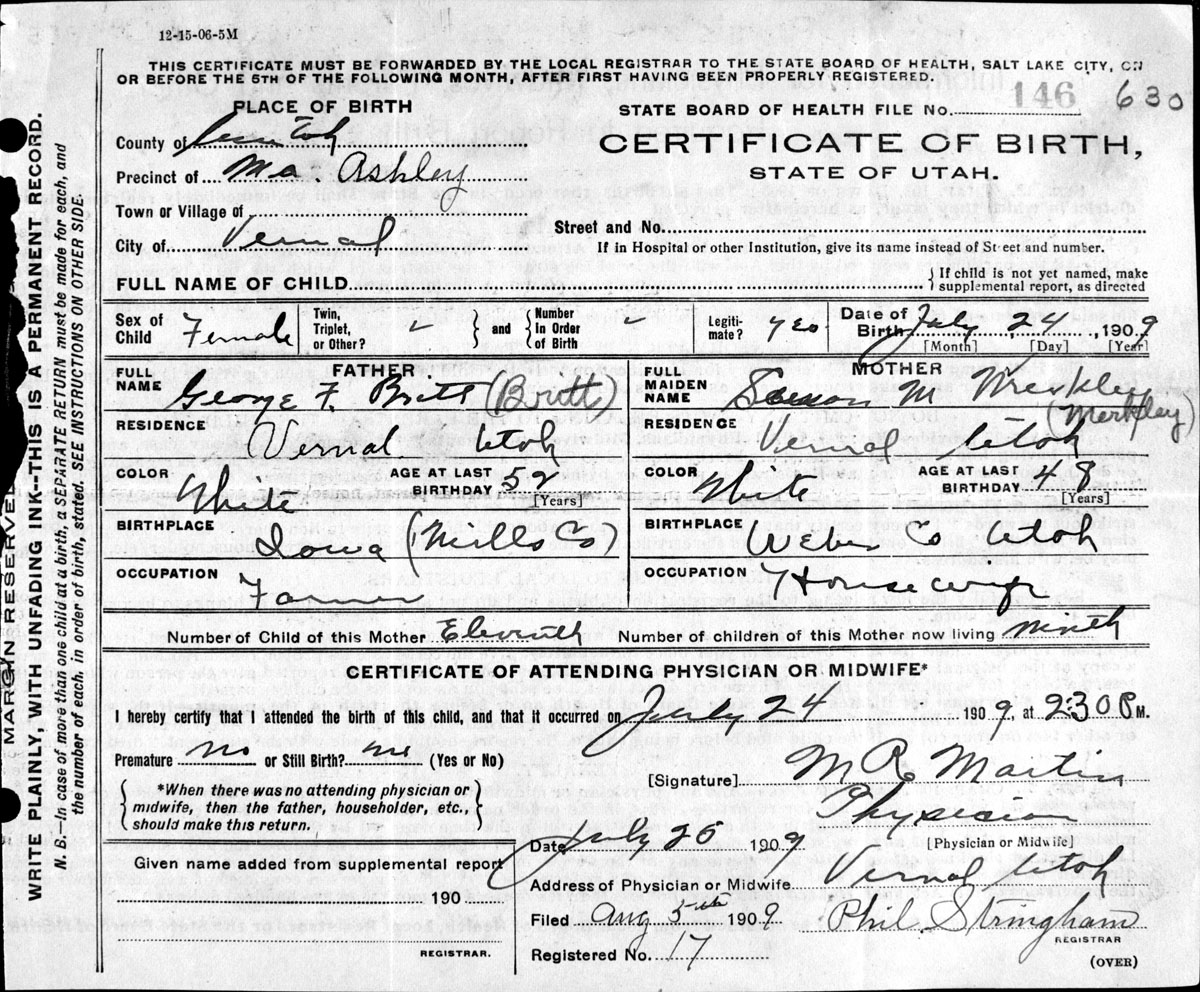 12-15-06-5M
THIS CERTIFICATE MUST BE FORWARDED BY THE LOCAL REGISTRAR TO THE STATE BOARD OF HEALTH, SALT LAKE CITY, ON
OR BEFORE THE 5TH OF THE FOLLOWING MONTH, AFTER FIRST HAVING BEEN PROPERLY REGISTERED.
PLACE OF BIRTH
County of Uintah
Precinct of Ashley
Town or Village of
City of Vernal
STATE BOARD OF HEALTH FILE No. 146 630
CERTIFICATE OF BIRTH,
STATE OF UTAH.
Street and No.
If in Hospital or other Institution, give its name instead of Street and number.
FULL NAME OF CHILD
If child is not yet named, make
supplemental report, as directed
Sex of Child Female
Twin, Triplet, or Other?
and
Number In Order of Birth
Legiti-mate? yes
Date of Birth July 24 1909
[Month] [Day] [Year]
FATHER
FULL NAME George F. Britt (Britt)
RESIDENCE Vernal Utah
COLOR White
AGE AT LAST BIRTHDAY 52 [Years]
BIRTHPLACE Iowa (Mills Co)
OCCUPATION Farmer
MOTHER
FULL MAIDEN NAME M (Merkley)
RESIDENCE Vernal Utah
COLOR White
AGE AT LAST BIRTHDAY 48 [Years]
BIRTHPLACE Weber Co Utah
OCCUPATION Housewife
Number of Child of this Mother Eleventh Number of children of this Mother now living Ninth
CERTIFICATE OF ATTENDING PHYSICIAN OR MIDWIFE*
I hereby certify that I attended the birth of this child, and that it occurred on July 24 1909, at 2:30 P M.
Premature no or Still Birth? no (Yes or No)
*When there was no attending physician or
midwife, then the father, householder, etc.,
should make this return.
[Signature] M R Martin
Physician
[Physician or Midwife]
Given name added from supplemental report
190
REGISTRAR.
Date July 26 1909
Address of Physician or Midwife Vernal Utah
Filed Aug 5th 1909 Phil. Stringham
REGISTRAR
Registered No. 17
(OVER)
MARGIN RESERVE
WRITE PLAINLY, WITH UNFADING INK--THIS IS A PERMANENT RECORD.
N. B.--In case of more than one child at a birth, a SEPARATE RETURN must be made for each, and
the number of each, in order of birth, stated. SEE INSTRUCTIONS ON OTHER SIDE.